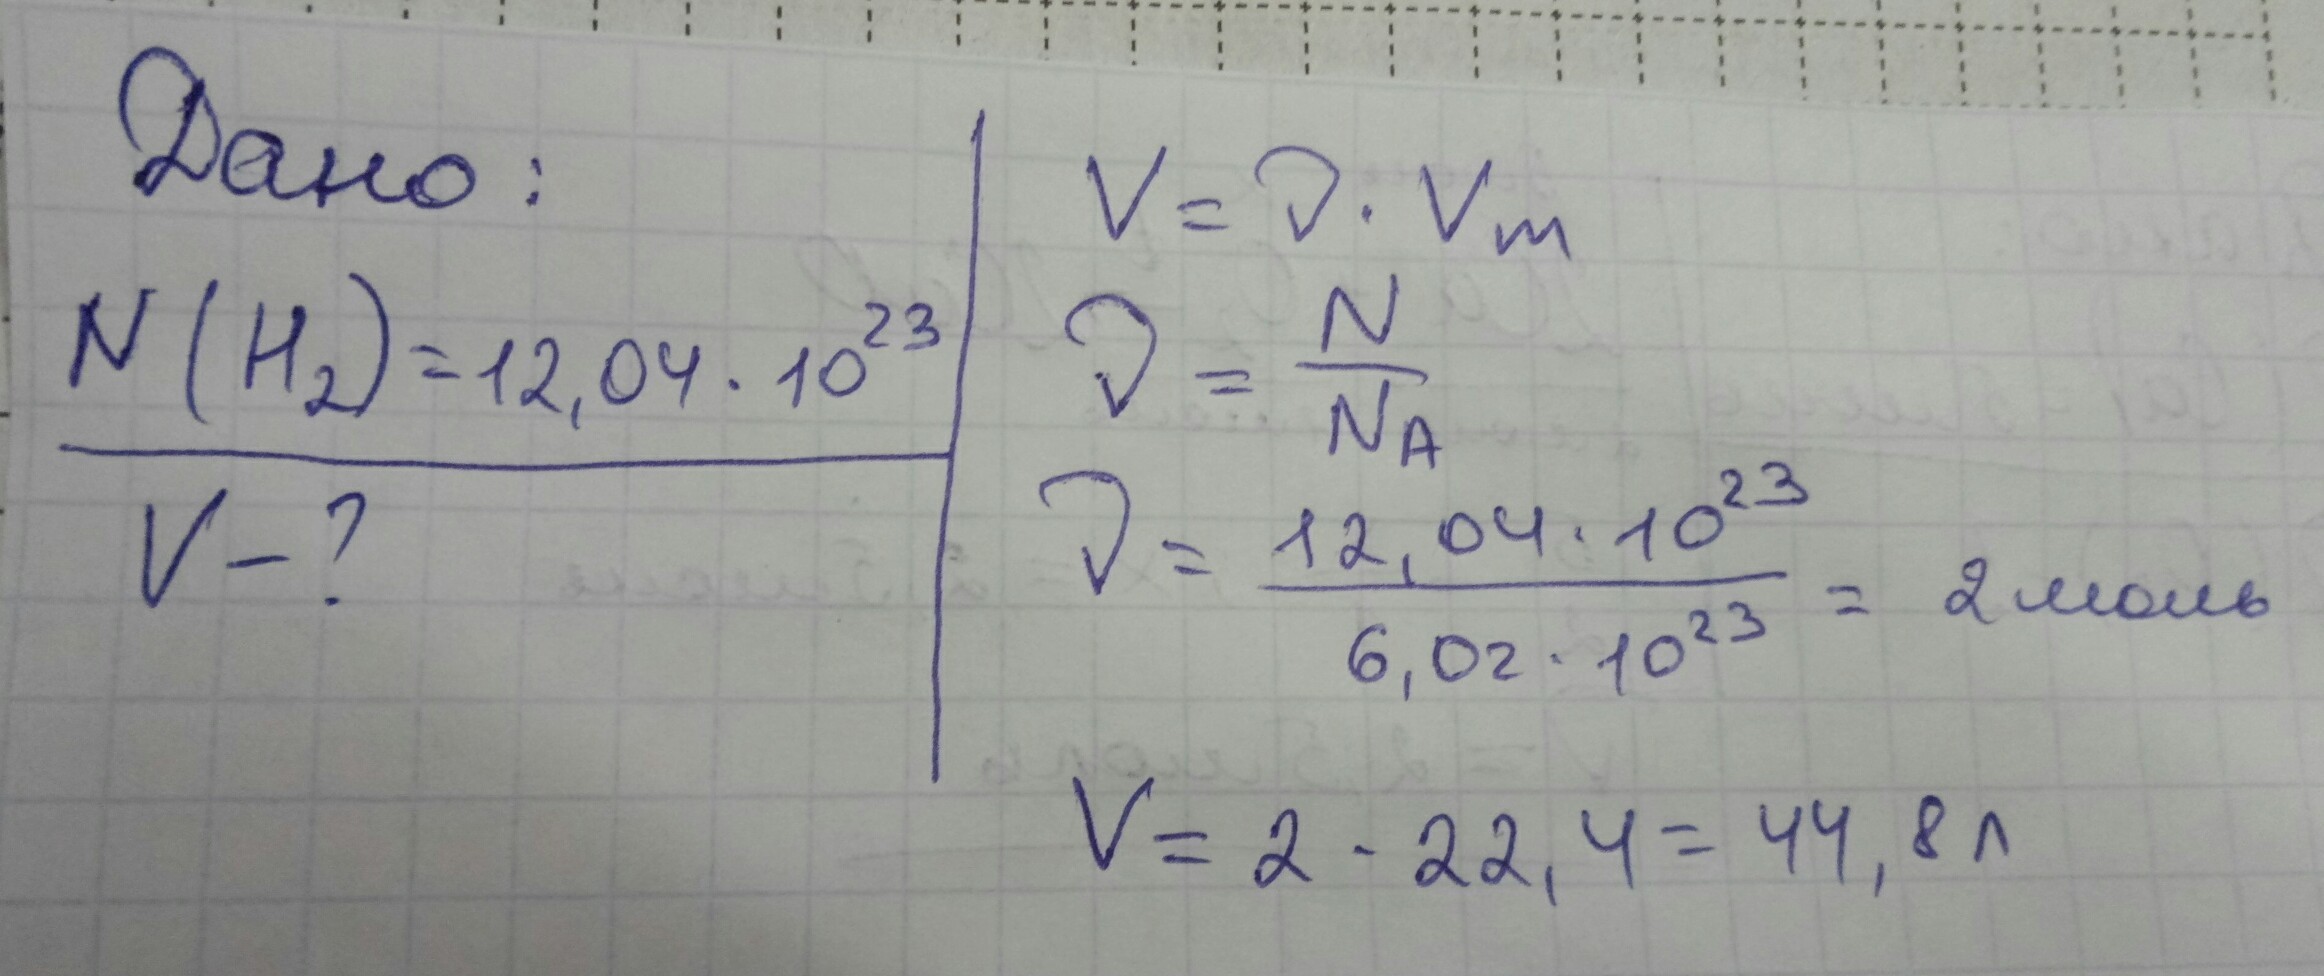 Дано:
N(H₂)=12,04·10²³
V-?
V=ν·Vm
ν=N/NA
ν=12,04·10²³/6,02·10²³=2моль
V=2·22,4=44,8л